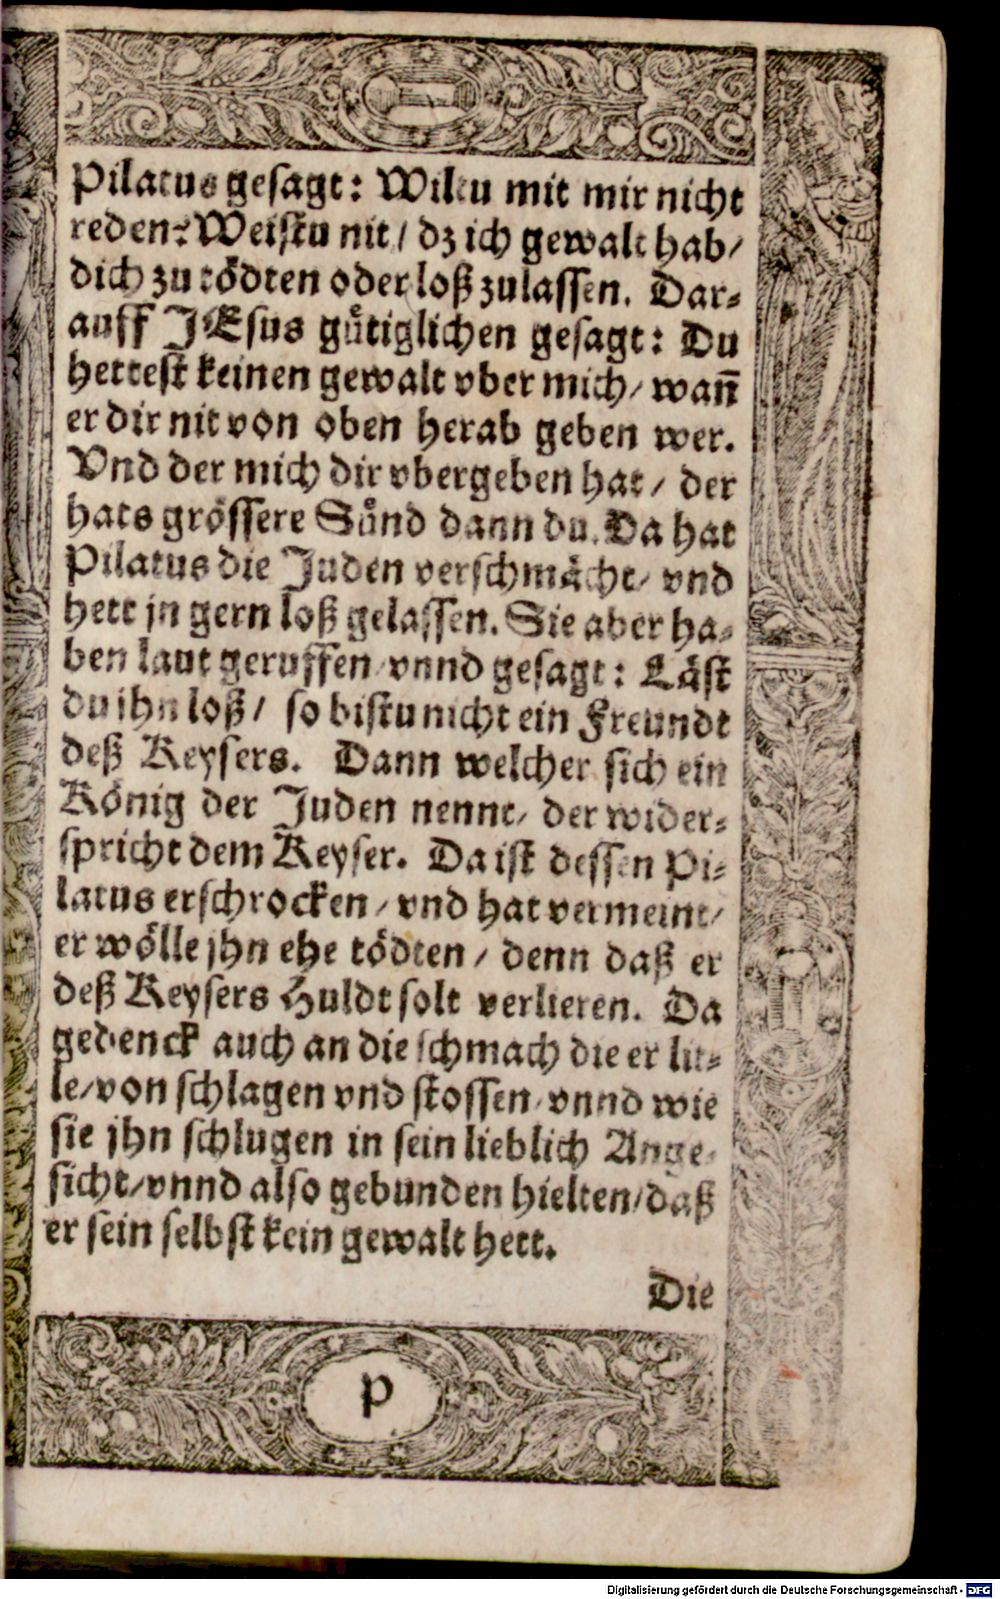 Pilatus gesagt: Wiltu mit mir nicht
reden? Weistu nit / dz ich gewalt hab /
dich zu tödten oder loß zulassen. Dar-
auff JEsus gütiglichen gesagt: Du
hettest keinen gewalt vber mich / wañ
er dir nit von oben herab geben wer.
Vnd der mich dir vbergeben hat / der
hats grössere Sünd dann du. Da hat
Pilatus die Juden verschmächt / vnd
hett jn gern loß gelassen. Sie aber ha-
ben laut geruffen / vnnd gesagt: Läst
du ihn loß / so bistu nicht ein Freundt
deß Keysers. Dann welcher sich ein
König der Juden nennt / der wider-
spricht dem Keyser. Da ist dessen Pi-
latus erschrocken / vnd hat vermeint /
er wölle jhn ehe tödten / denn daß er
deß Keysers Huldt solt verlieren. Da
gedenck auch an die schmach die er lit-
te / von schlagen vnd stossen / vnnd wie
sie jhn schlugen in sein lieblich Ange-
sicht / vnnd also gebunden hielten / daß
er sein selbst kein gewalt hett.
Die
P
Digitalisierung gefördert durch die Deutsche Forschungsgemeinschaft - DFG